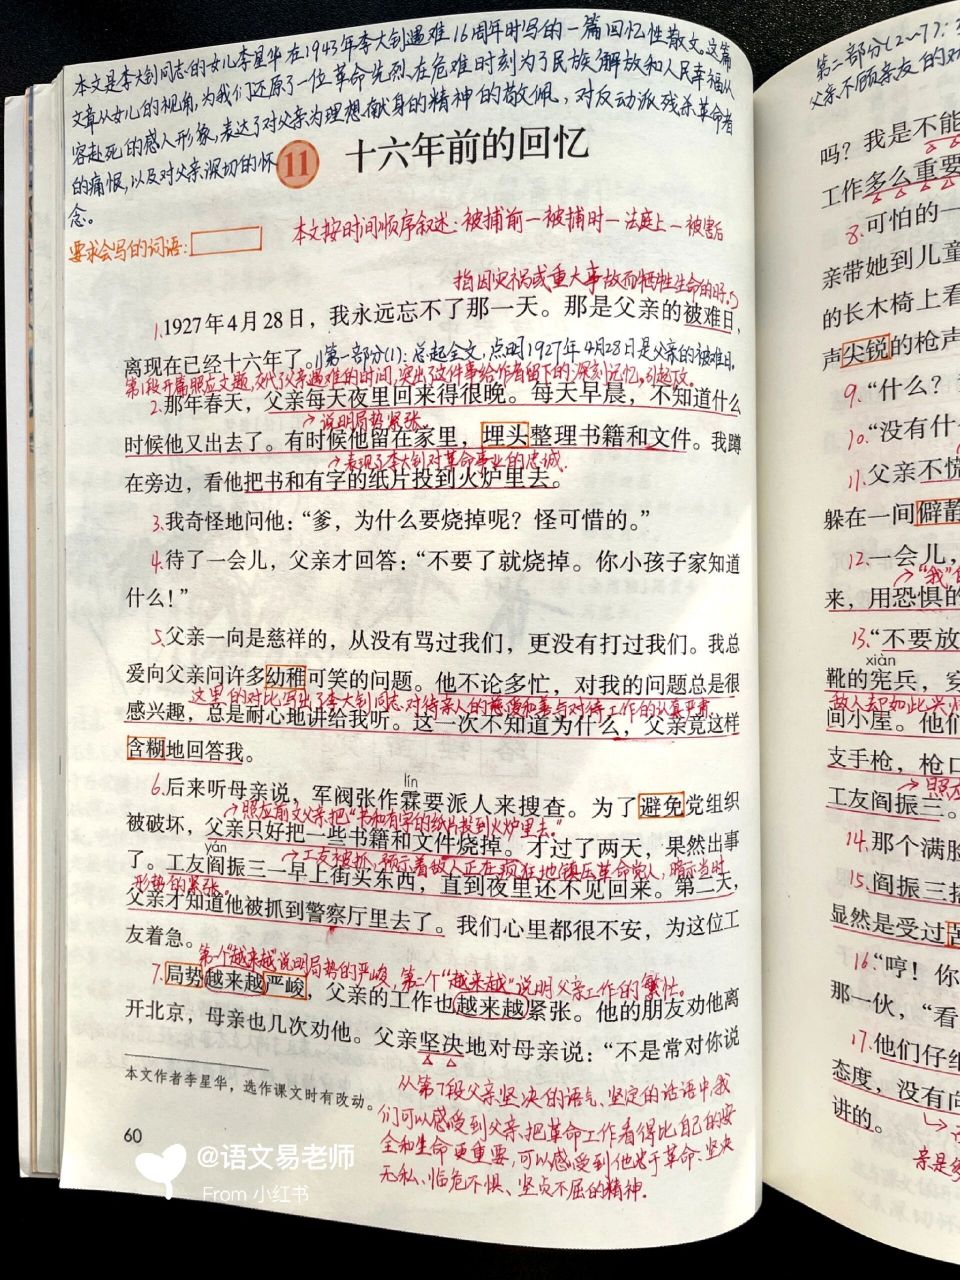 本文是李大钊同志的女儿李星华在1943年李大钊遇难16周年时写的一篇回忆性散文。这篇
文章从女儿的视角,为我们还原了一位革命先烈在危难时刻为了民族解放和人民幸福从
容赴死的感人形象,表达了对父亲为理想献身的精神的敬佩,对反动派残杀革命者
的痛恨,以及对父亲深切的怀
念。
11 十六年前的回忆
要求会写的词语:
本文按时间顺序叙述:被捕前—被捕时—法庭上—被害后
指因灾祸或重大事故而牺牲生命的日子。
1.1927年4月28日,我永远忘不了那一天。那是父亲的被难日,
离现在已经十六年了。//第一部分(1):总起全文,点明1927年4月28日是父亲的被难日。
第1段开篇照应文题,交代了父亲遇难的时间,突出了这件事给作者留下的深刻记忆,引起下文。
2.那年春天,父亲每天夜里回来得很晚。每天早晨,不知道什么
说明局势紧张。
时候他又出去了。有时候他留在家里,埋头整理书籍和文件。我蹲
表现了李大钊对革命事业的忠诚。
在旁边,看他把书和有字的纸片投到火炉里去。
3.我奇怪地问他:“爹,为什么要烧掉呢?怪可惜的。”
4.待了一会儿,父亲才回答:“不要了就烧掉。你小孩子家知道
什么!”
5.父亲一向是慈祥的,从没有骂过我们,更没有打过我们。我总
爱向父亲问许多幼稚可笑的问题。他不论多忙,对我的问题总是很
这里的对比写出了李大钊同志对待亲人的慈爱和善与对待工作的认真严肃
感兴趣,总是耐心地讲给我听。这一次不知道为什么,父亲竟这样
含糊地回答我。
lín
6.后来听母亲说,军阀张作霖要派人来搜查。为了避免党组织
照应前文父亲把“书和有字的纸片投到火炉里去。”
被破坏,父亲只好把一些书籍和文件烧掉。才过了两天,果然出事
yán
工友被抓,预示着敌人正在疯狂地镇压革命党人,暗示当时
了。工友阎振三一早上街买东西,直到夜里还不见回来。第二天,
形势的紧张。
父亲才知道他被抓到警察厅里去了。我们心里都很不安,为这位工
友着急。
第一个“越来越”说明局势的严峻,第二个“越来越”说明父亲工作的繁忙。
7.局势越来越严峻,父亲的工作也越来越紧张。他的朋友劝他离
开北京,母亲也几次劝他。父亲坚决地对母亲说:“不是常对你说
从第7段父亲坚决的语气、坚定的话语中我
们可以感受到父亲把革命工作看得比自己的安
全和生命更重要,可以感受到他忠于革命、坚决
无私、临危不惧、坚贞不屈的精神.
本文作者李星华,选作课文时有改动。
60
@语文易老师
From 小红书
第二部分(2~7):
父亲不顾亲友的
吗?我是不能
工作多么重要
8.可怕的一
亲带她到儿童
的长木椅上看
声尖锐的枪声
9.“什么?
10.“没有什
11.父亲不慌
躲在一间僻静
12.一会儿,
“我”的
来,用恐惧的
13.“不要放
xiàn
靴的宪兵,穿
敌人却如此兴
间小屋。他们
支手枪,枪口
照应
工友阎振三。
14.那个满脸
15.阎振三招
显然是受过苦
16.“哼!你
那一伙,“看
17.他们仔细
态度,没有向
讲的。